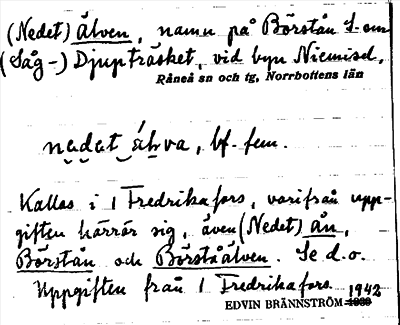 (Nedet) älven, namn på Börstån S. om
(Såg-) Djupträsket, vid byn Niemisel,
Råneå sn och tg, Norrbottens län
nedet älva, bf. fem.
Kallas i 1 Fredrikafors, varifrån upp-
giften härrör sig, även (Nedet) ån,
Börstån och Börståälven. Se d.o.
Uppgiften från 1 Fredrikafors.
EDVIN BRÄNNSTRÖM 1942